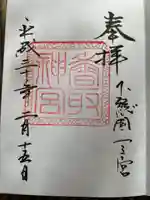 奉拝
下総国一之宮
香取神宮
平成三十年二月十五日